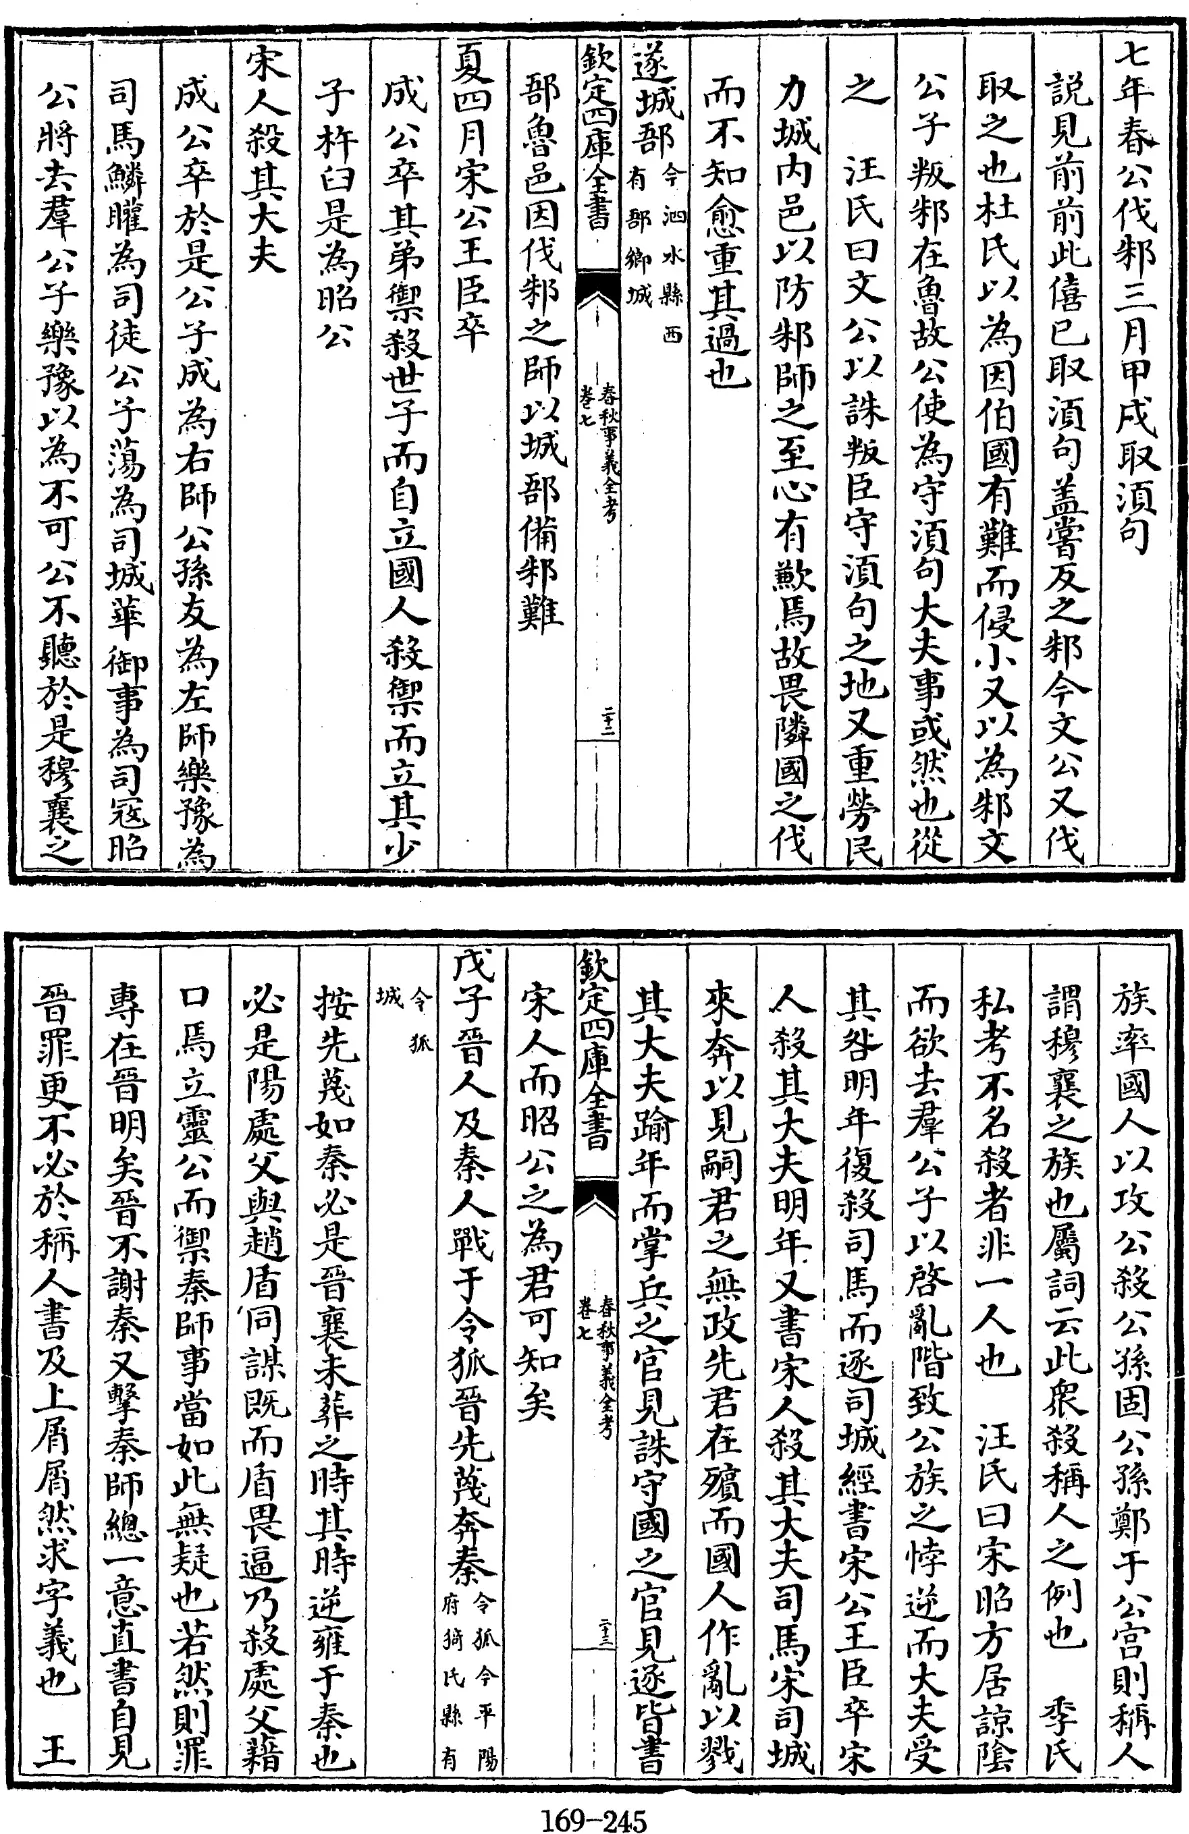 七年春公伐邾三月甲戌取湏句
說見前前此僖已取湏句盖嘗反之邾今文公又伐
取之也杜氏以為因伯國有難而侵小又以為邾文
公子叛邾在魯故公使為守湏句大夫事或然也從
之　汪氏曰文公以誅叛臣守湏句之地又重勞民
力城内邑以防邾師之至心有歉焉故畏隣國之伐
而不知愈重其過也
遂城郚今泗水縣西有郚鄉城
欽定四庫全書
春秋事義全考
卷七
二十二
郚魯邑因伐邾之師以城郚備邾難
夏四月宋公王臣卒
成公卒其弟禦殺世子而自立國人殺禦而立其少
子杵臼是為昭公
宋人殺其大夫
成公卒於是公子成為右師公孫友為左師樂豫為
司馬鱗矔為司徒公子蕩為司城華御事為司寇昭
公將去羣公子樂豫以為不可公不聽於是穆襄之
族率國人以攻公殺公孫固公孫鄭于公宫則稱人
謂穆襄之族也屬詞云此衆殺稱人之例也　季氏
私考不名殺者非一人也　汪氏曰宋昭方居諒隂
而欲去羣公子以啓亂階致公族之悖逆而大夫受
其咎明年復殺司馬而逐司城經書宋公王臣卒宋
人殺其大夫明年又書宋人殺其大夫司馬宋司城
來奔以見嗣君之無政先君在殯而國人作亂以戮
其大夫踰年而掌兵之官見誅守國之官見逐皆書
欽定四庫全書
春秋事義全考
卷七
二十三
宋人而昭公之為君可知矣
戊子晉人及秦人戰于令狐晉先蔑奔秦令狐今平陽府猗氏縣有
令狐城
按先蔑如秦必是晉襄未葬之時其時逆雍于秦也
必是陽處父與趙盾同謀既而盾畏逼乃殺處父藉
口焉立靈公而禦秦師事當如此無疑也若然則罪
專在晉明矣晉不謝秦又擊秦師總一意直書自見
晉罪更不必於稱人書及上屑屑然求字義也　王
169-245